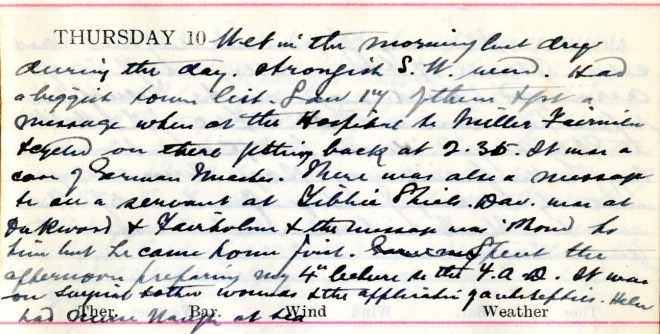 THURSDAY 10 Wet in the morning but dry
during the day. Strongish S.W. wind. Had
a biggish town list. Saw 17 of them & got a
message when at the Hospital to Miller
& cycled on there getting back at 2.35. It was a
case of German Measles. There was also a message
to see a servant at Shiels. Dav. was at
& & the message was 'phoned to
him but he came home first. Spent the
afternoon preparing my 4th lecture to the V.A.D. It was
on Surgical & other wounds & the application of antiseptics. Helen
Ther. Bar. Wind Weather
had Nurse at tea